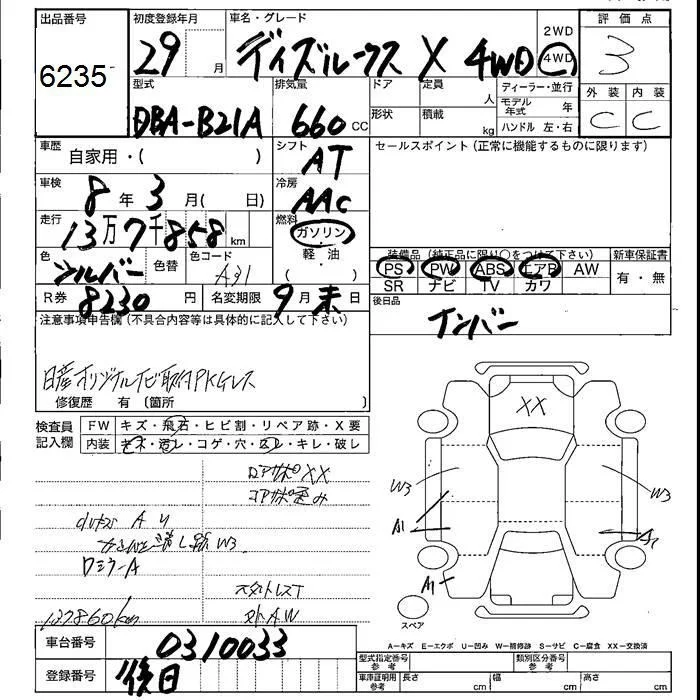 出品番号
6235
初度登録年月
29 月
車名・グレード
デイズルークス X 4WD
2WD
4WD
評価点
3
外装 内装
C C
型式
DBA-B21A
排気量
660 CC
ドア
形状
定員
人
積載
kg
ディーラー・並行
モデル年式 年
ハンドル 左・右
車歴
自家用・( )
シフト
AT
セールスポイント(正常に機能するものに限ります)
車検
8年 3月( 日)
冷房
AAC
走行
13万7千858 km
燃料
ガソリン
軽・油
( )
色
シルバー
色替
色コード
A31
装備品(純正品に限り○をつけて下さい)
PS PW ABS エアB AW
SR ナビ TV カワ
新車保証書
有・無
R券 8230 円
名変期限 9月末日
後日品
ナンバー
注意事項申告欄(不具合内容等は具体的に記入して下さい)
日産オリジナルナビ取付PKGレス
修復歴 有 〔箇所 〕
検査員記入欄
FW キズ・飛石・ヒビ割・リペア跡・X要
内装 キズ・汚レ・コゲ・穴・スレ・キレ・破レ
コアサポXX
コアサポ歪み
A U
W3
ロミラーA
137860km
XX
W3
W3
A1
A1
A1
スペア
A=キズ E=エクボ U=凹み W=補修跡 S=サビ C=腐食 XX=交換済
車台番号
0310033
登録番号
後日
型式指定番号
参考
類別区分番号
参考
車庫証明用
参考
長さ cm
幅 cm
高さ cm